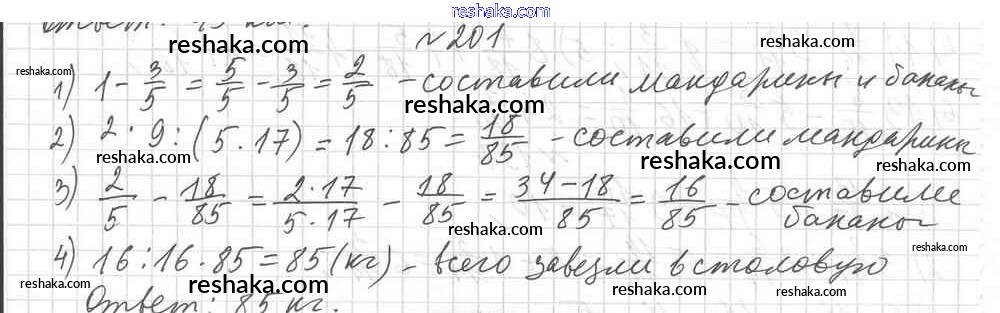 www.reshaka.com
Ответ: 45 кг.
№201
reshaka.com reshaka.com
reshaka.com
1) 1 - 3/5 = 5/5 - 3/5 = 2/5 - составили мандарины и бананы
reshaka.com reshaka.com
2) 2 · 9 : (5 · 17) = 18 : 85 = 18/85 - составили мандарины
reshaka.com reshaka.com reshaka.com
3) 2/5 - 18/85 = 2·17/5·17 - 18/85 = 34-18/85 = 16/85 - составили
бананы
reshaka.com
4) 16 : 16 · 85 = 85 (кг) - всего завезли в столовую
reshaka.com reshaka.com reshaka.com reshaka.com
Ответ: 85 кг.